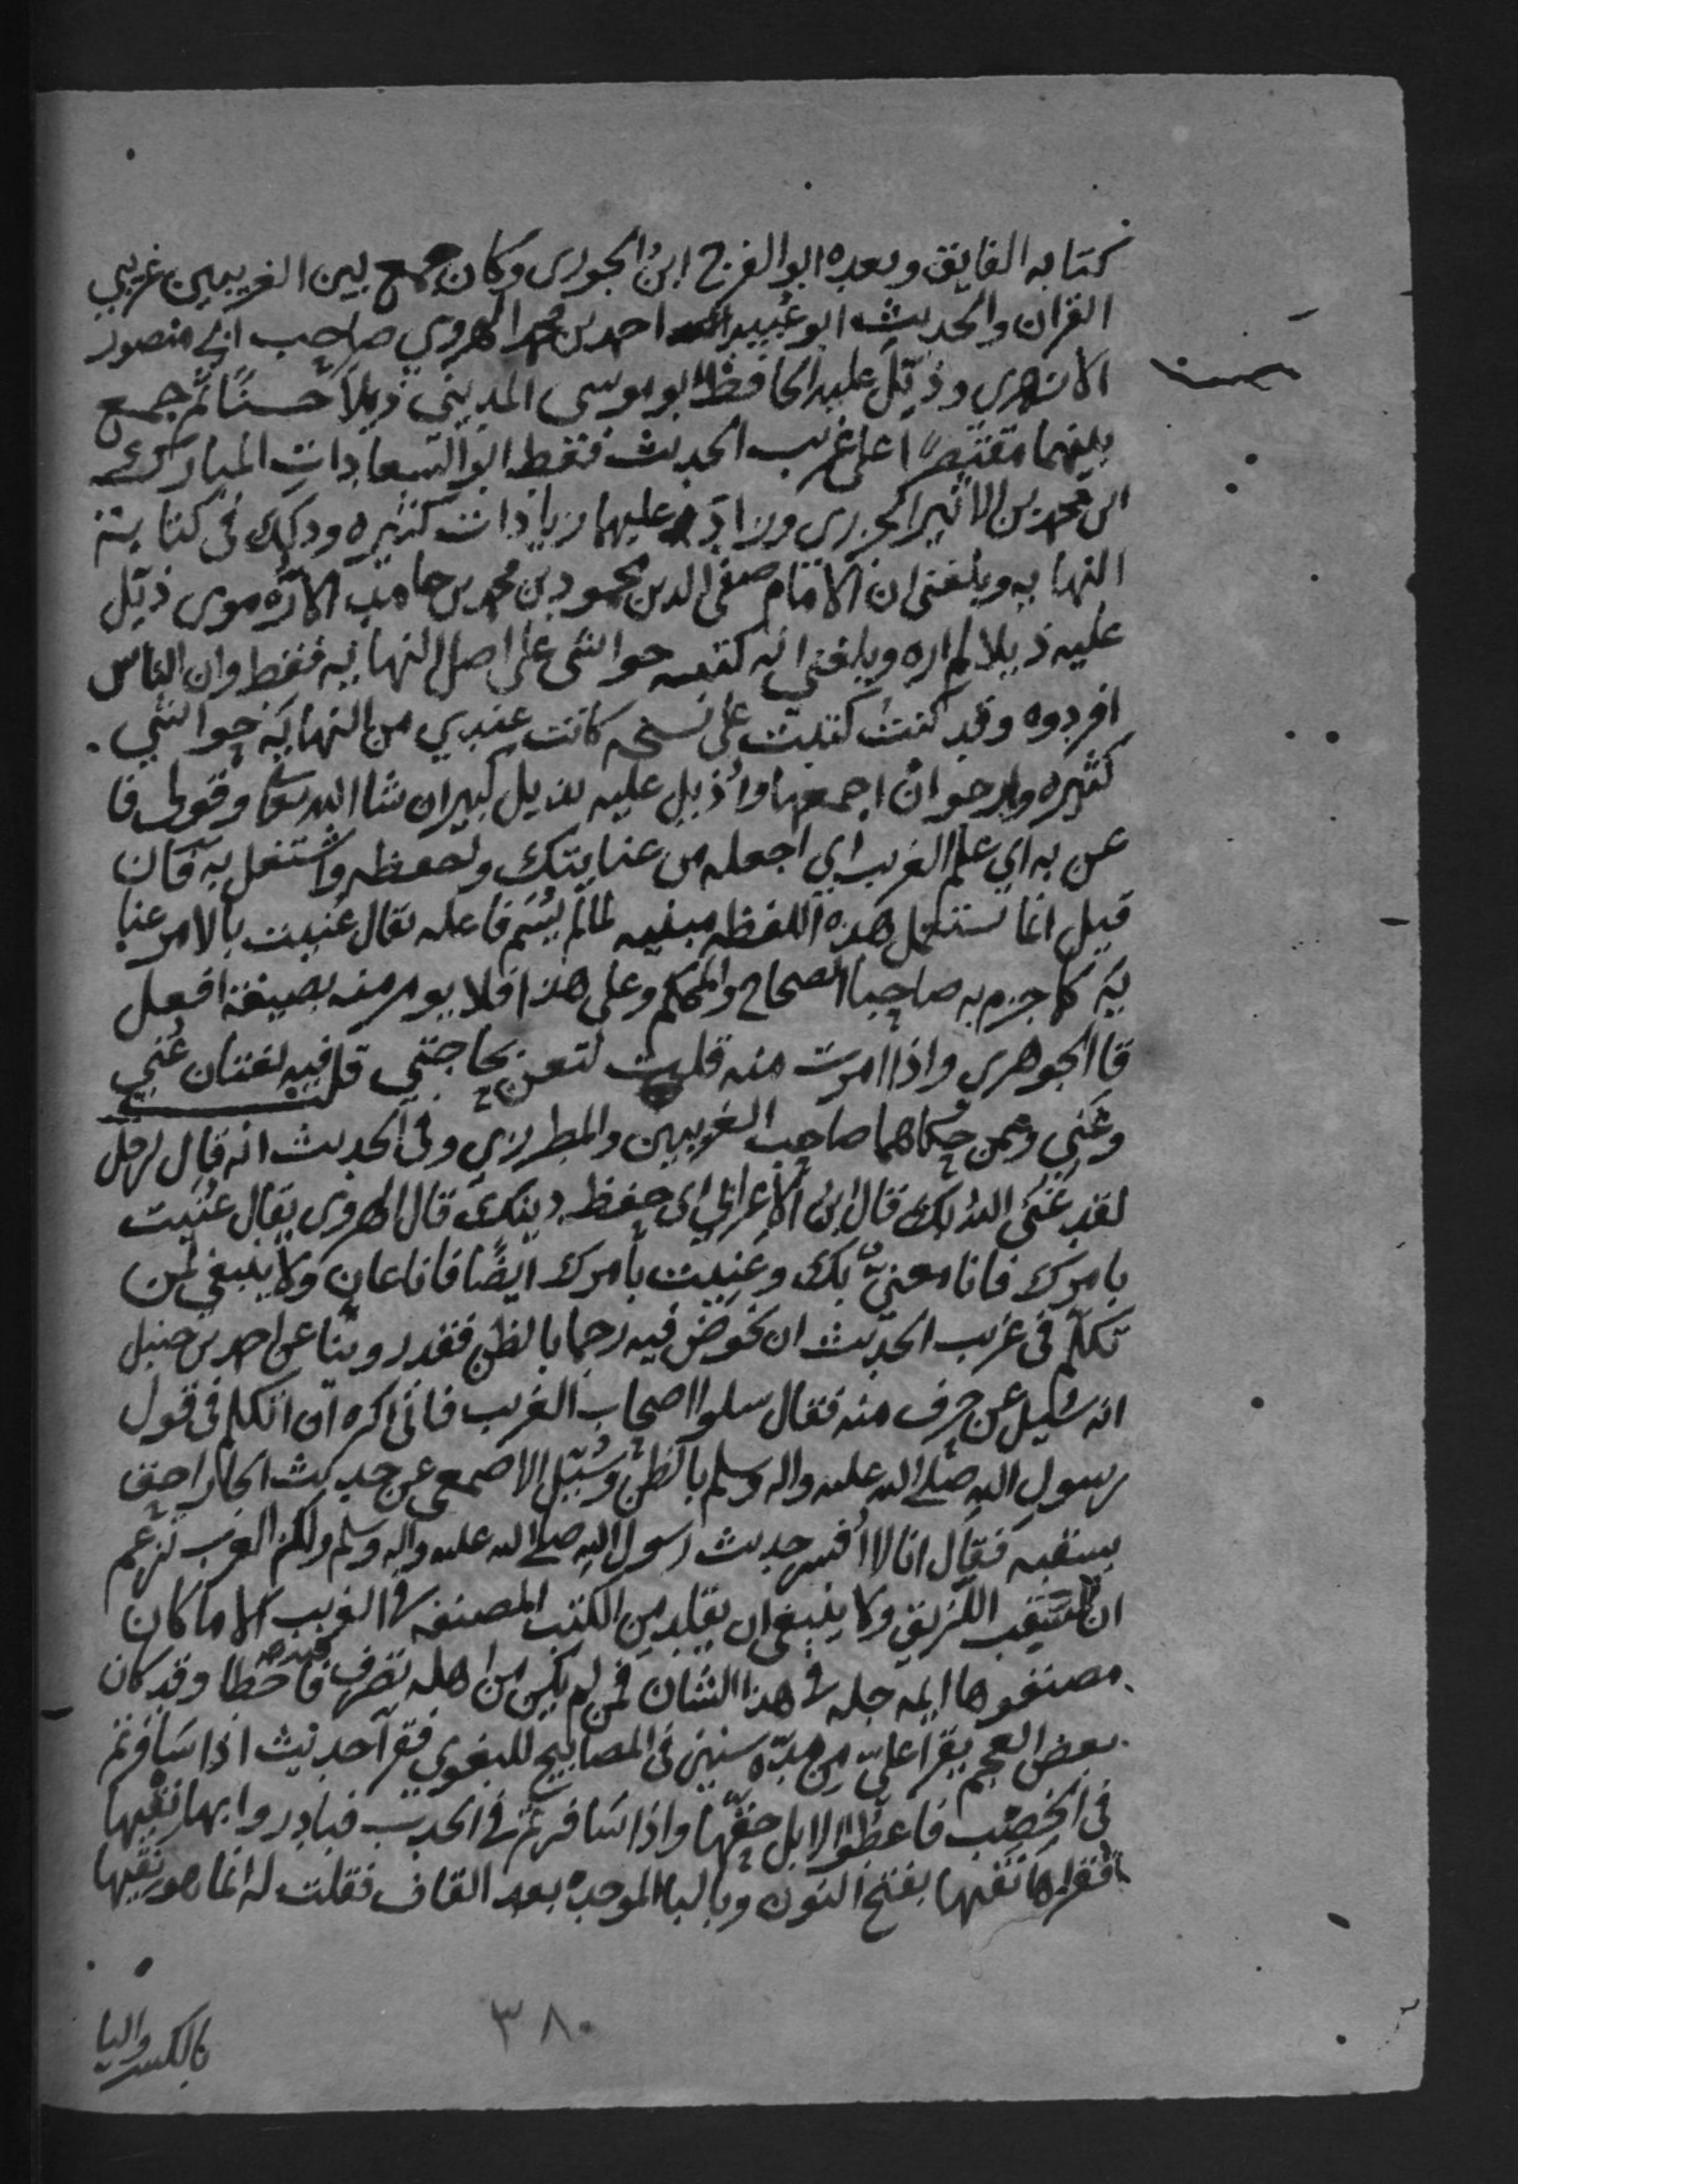 كتابه الفايق وبعده ابوالفرج ابن الجوزى وكان جمع بين الغريبين غريبي
القران والحديث ابو عبيد احمد بن محمد الهروي صاحب ابي منصور
الازهرى وذيّل عليه الحافظ ابو موسى المديني ذيلا حسنًا ثم جمع
بينهما مقتصرًا على غريب الحديث فقط ابو السعادات المبارك
بن محمد بن الاثير الجزرى وزاد عليهما زيادات كثيره وذلك فى كتابه
النهايه وبلغنى ان الامام صفى الدين محمود بن محمد بن حامد الارموى ذيّل
عليه ذيلا لم اره وبلغني انه كتبه حواشى على اصل النهايه فقط وان الناس
افردوه وقد كنت كتبت على نسخه كانت عندي من النهايه حواشي
كثيره وارجوا ان اجمعها واُذيل عليه بذيل كبير ان شا الله تعا وقولى فا
عن به اي علم الغريب اي اجعله من عنايتك ولحفظه واشتغل به فان
قيل انما تستعمل هذه اللفظه مبنيه لما لم يُسَم فاعله يقال عُنيت بالامر عنا
يَه كما جزم به صاحبا الصحاح والمحكم وعلى هذا فلا يومر منه بصيغة افعل
قا الجوهرى واذا امرت منه قلت لتعن بحاجتي قلت فيه لغتان عُني
وعَني وممن حكاهما صاحب الغريبين والمطرزي وفى الحديث انه قال لرجل
لقد عَنَى الله بك قال ابن الاعرابي اى حفظ دينك قال الهروى يقال عُنيت
بامرك فانا معنىٌّ بك وعَنيت بأمرك ايضًا فانا عان ولا ينبغي لمن
تكلّم فى غريب الحديث ان يخوض فيه رجما بالظن فقد روينا عن احمد بن حنبل
انه سُئيل عن حرف منه فقال سلوا اصحاب الغريب فانى اكره ان اتكلم فى قول
رسول الله صلى الله عليه واله وسلم بالظن وسُئِل الاصمعى عن حديث الجار احق
بسقبه فقال انا لا اُفسر حديث رسول الله صلى الله عليه واله وسلم ولكن العرب تزعم
ان السَّقب اللّزيق ولا ينبغى ان يقلد من الكتب المصنفه فى الغريب الا ما كان
مصنفوها ايمه جله فى هذا الشان فمن لم يكن من اهله تصرف فيه فاخطا وقد كان
بعض العجم يقرا عليّ من مدّه سنين فى المصابيح للبغوى فقرا حديث اذا سَافرتم
فى الخِصْب فاعطوا الابل حقّها واذا سَافرتم فى الجدب فبادروا بها نِقْيها
فقراها نَقَبها بفتح النون وبالبا الموحده بعد القاف فقلت له انما هو نِقْيها
بالكسر واليا
٣٨٠